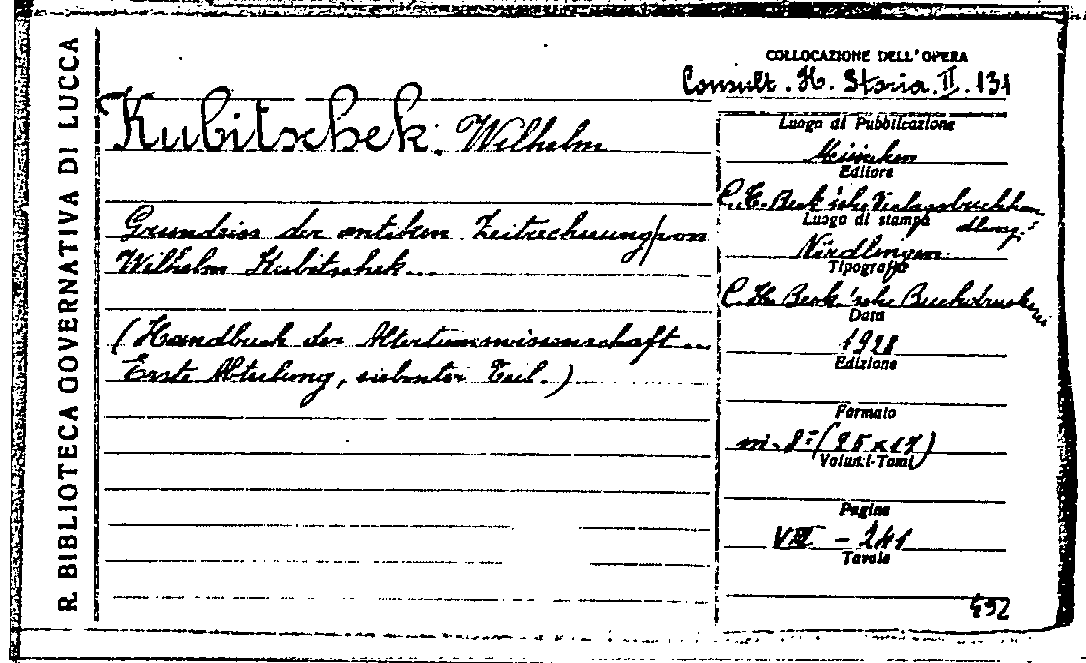 R. BIBLIOTECA GOVERNATIVA DI LUCCA
COLLOCAZIONE DELL'OPERA
Consult. H. Storia. II. 131
Kubitschek, Wilhelm
Grundriss der antiken Zeitrechnung/von
Wilhelm Kubitschek...
(Handbuch der Altertumswissenschaft...
Erste Abteilung, siebenter Teil.)
Luogo di Pubblicazione
München
Editore
C. H. Beck'sche Verlagsbuchhan
dlung
Luogo di stampa
Nördlingen
Tipografia
C. H. Beck'sche Buchdruckerei
Data
1928
Edizione
Formato
in-8º (25 x 17)
Volumi-Tomi
Pagine
VIII - 241
Tavole